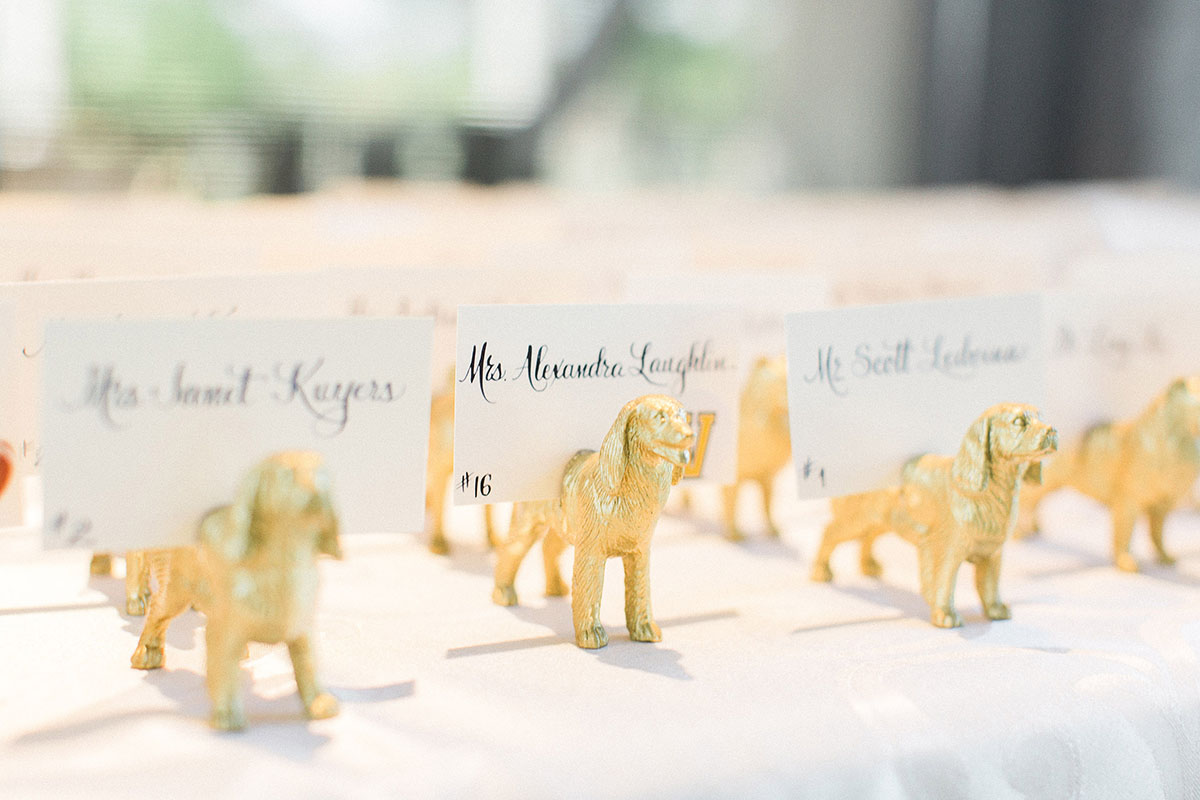 Mrs Janit Kuyers
#2
Mrs. Alexandra Laughlin
#16
Mr Scott
#1